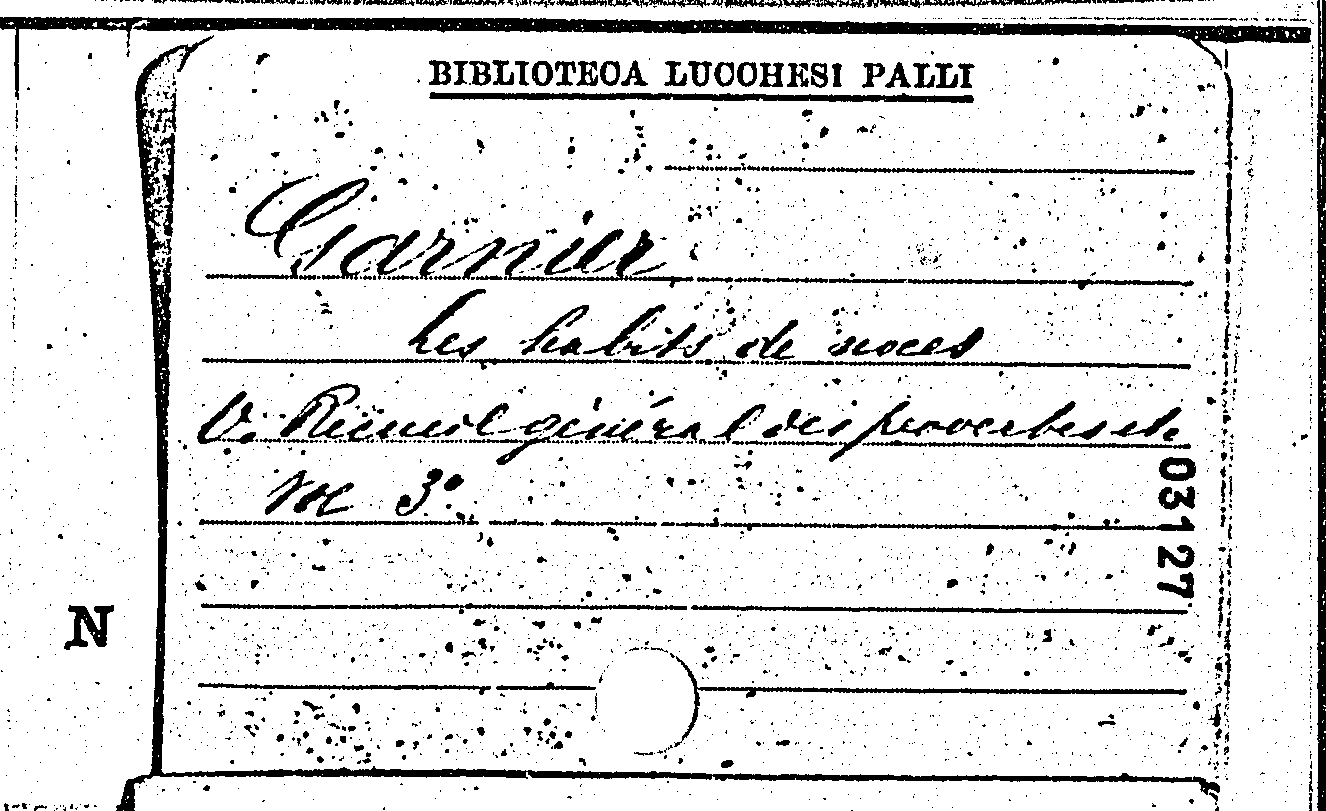 BIBLIOTECA LUCCHESI PALLI
Garnier
Les habits de noces
V. Recueil général des proverbes etc
Vol 3º
03127
N